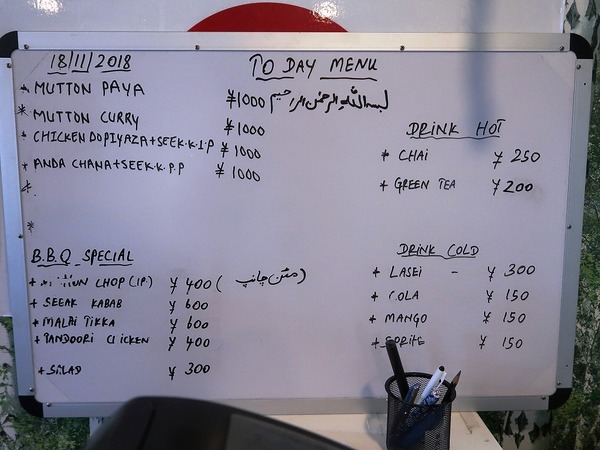 18/11/2018
TO DAY MENU
* MUTTON PAYA ¥1000 بسم اللہ الرحمن الرحیم
* MUTTON CURRY ¥1000
* CHICKEN DOPIYAZA+SEEK.K.1.P ¥1000
* ANDA CHANA+SEEK.K.P.P ¥1000
*
*
DRINK HOT
* CHAI ¥250
+ GREEN TEA ¥200
B.B.Q SPECIAL
+ CHOP (1P.) ¥400 (مٹن چانپ)
+ SEEAK KABAB ¥600
+ MALAI TIKKA ¥600
+ TANDOORI CHICKEN ¥400
+ SALAD ¥300
DRINK COLD
+ LASEI - ¥300
+ COLA ¥150
+ MANGO ¥150
+ SPRITE ¥150